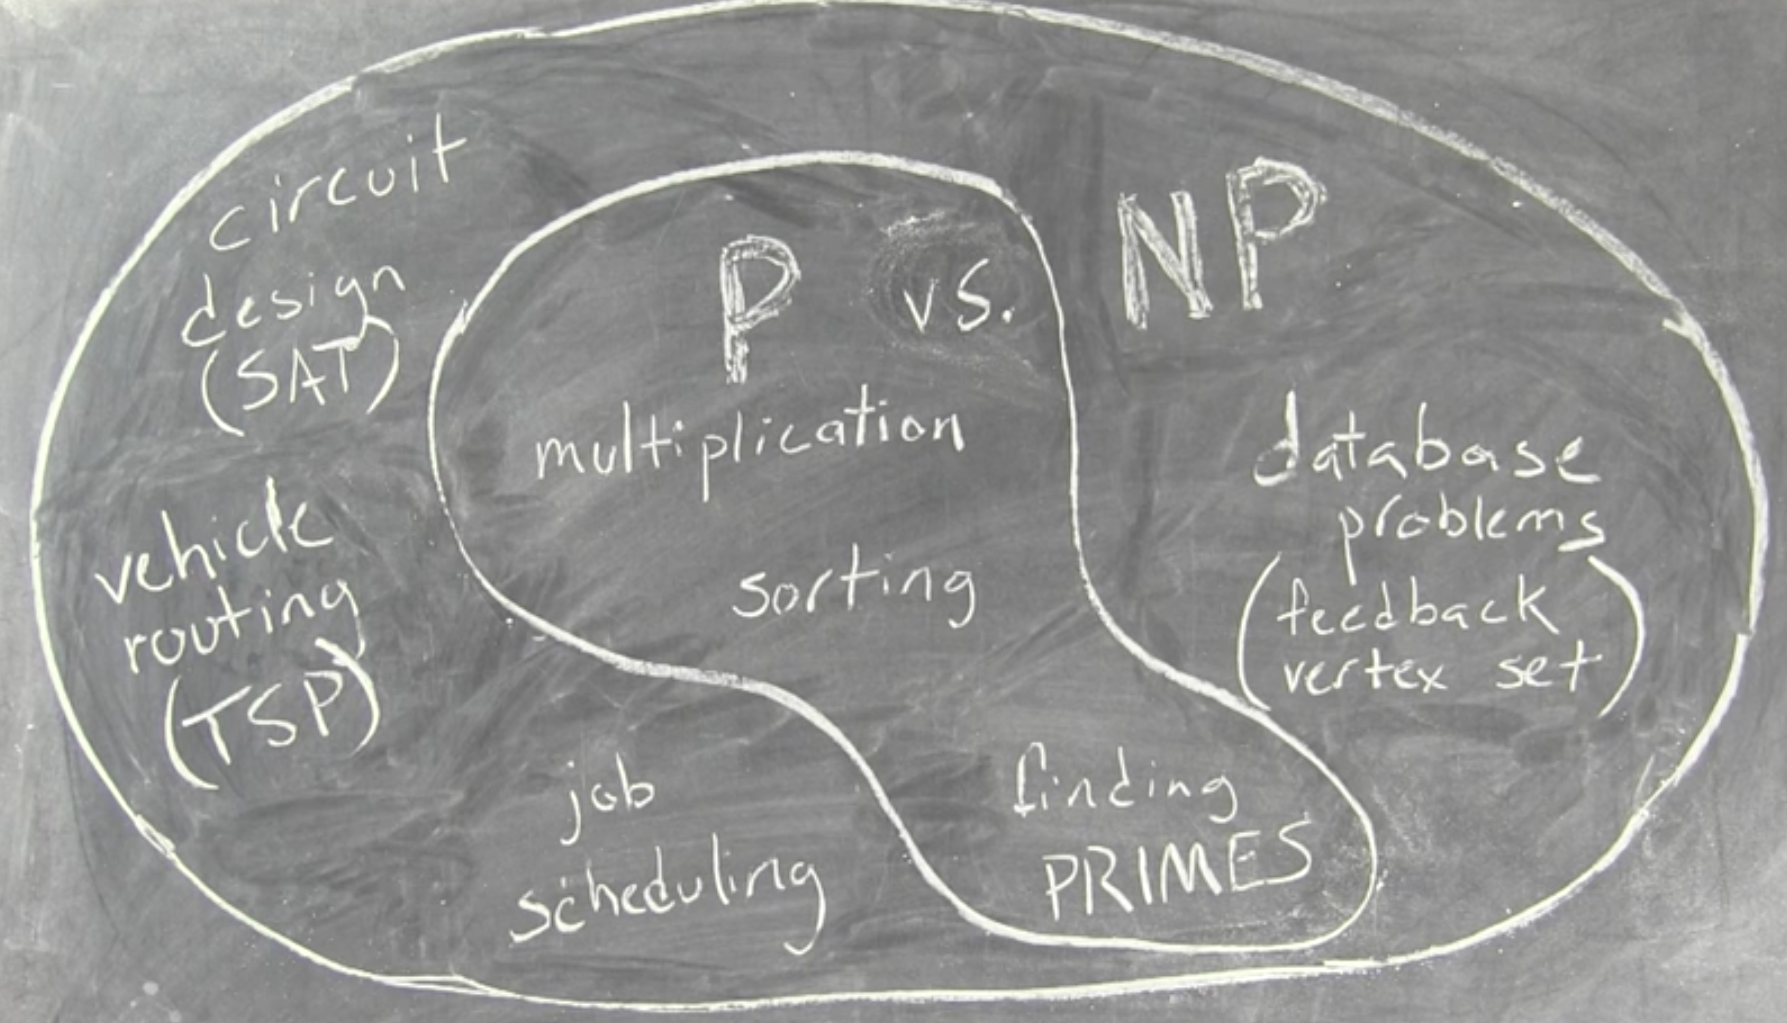 P vs. NP
circuit
design
(SAT)
vehicle
routing
(TSP)
multiplication
sorting
job
scheduling
finding
PRIMES
database
problems
(feedback
vertex set)